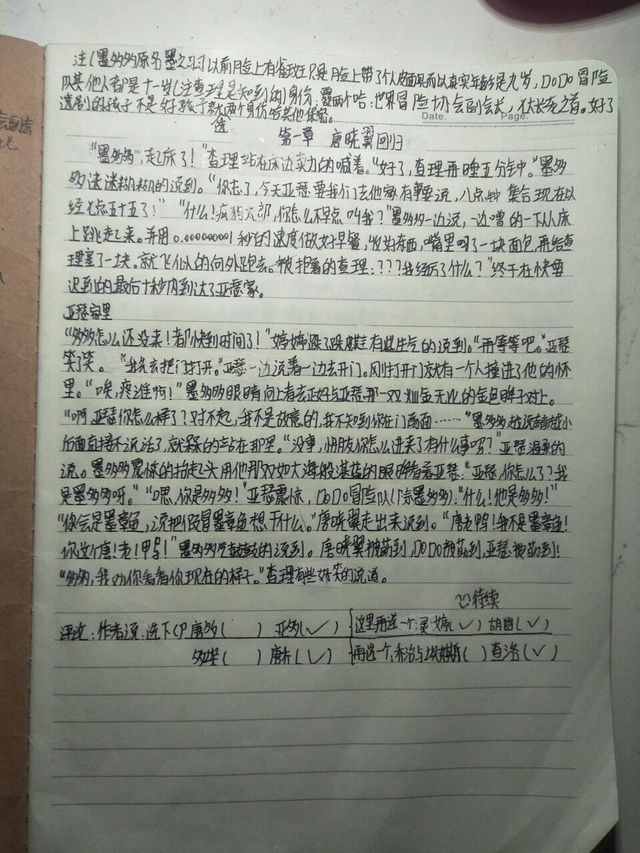 注(墨多多原名墨之
以前脸上有雀斑只是脸上带了个人皮面具而以真实年龄是九岁,DoDo冒险
队其他人都是十一岁(注查理是知到的)身份:墨
哈:世界冒险协会副会长,伏长老之首。好了
Date. Page.
第一章 唐晓翼回归
“墨多多,起床了!”查理站在床边卖力的喊着。“好了,查理再睡五分钟。”墨多
多迷迷糊糊的说到。“你忘了,今天亚瑟要我们去他家有事要说,八点
集合现在以
经七点五十五了!”“什么!疯狗大郎,你怎么不早点叫我?”墨多多一边说,一边噌的一下从床
上跳起来。并用0.00000001秒的速度做好早餐,
嘴里叼了一块面包,再给查
理塞了一块。就飞似人的向外跑去。被拒着的查理:???我经历了什么?”终于在快要
迟到的最后十秒内到达了亚瑟家。
亚瑟家里
“多多怎么还没来!都快到时间了!”婷婷跺了跺脚有些生气的说到。“再等等吧。”亚瑟
笑了笑。“我先去把门打开。”亚瑟一边说着一边去开门。刚打开门就有一个人撞进了他的怀
里。“唉,疼谁啊!”墨多多眼睛向上看去正好与亚瑟那一双灿金无比的金色眸子对上。
“啊,亚瑟你怎么样了?对不起,我不是故意的,我不知到你在门面……”墨多多越说声音越小
后面直接不说话了,就
的站在那里。“没事,小朋友你怎么进来了有什么事吗?”亚瑟温柔的
说。墨多多震惊的抬起头用他那双如大海般湛蓝的眼睛看着亚瑟:“亚瑟,你怎么了?我
是墨多多呀。”“嗯,你是多多!”亚瑟震惊,DoDo冒险队
墨多多:“什么!他是多多!”
“你会是墨章鱼,说把你冒墨章鱼想干什么。”唐晓翼走出来说到。“唐老鸭!我不是墨章鱼!
你这个唐!老!鸭!”墨多多
的说到。唐晓翼被萌到,DODO被萌到,亚瑟被萌到!
“多多,我劝你看看你现在的样子。”查理有些好笑的说道。
待续
评论:作者说:选下CP唐多( ) 亚多(✓) 这里再选一个:灵婷(✓) 胡
(✓)
( ) 唐乔(✓) 再选一个:乔治与埃
( ) 查洛(✓)